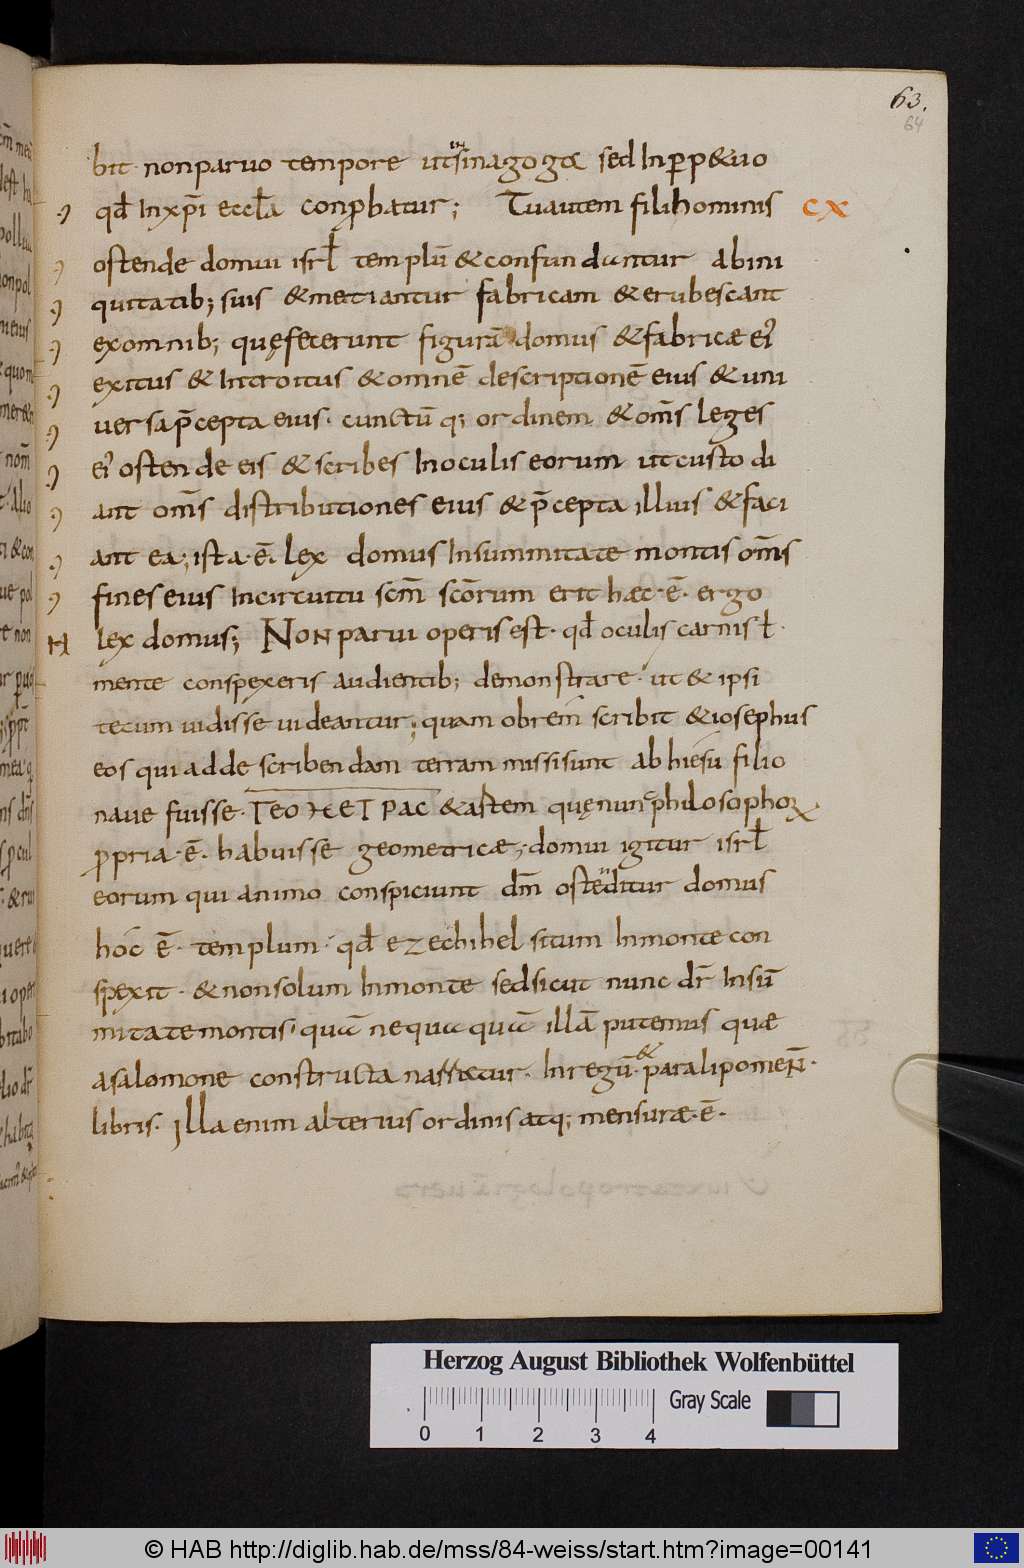 63.
64
bit· non paruo tempore ut in sinagoga sed In p̱p&uo
qd̄ In xp̄i eccl̄a conp̱batur; Tu autem fili hominis CX
ostende domui isrl̄ templū & confundantur ab ini
quitatib; suis & metiantur fabricam & erubescant
ex omnib; quę fecerunt figurā domus & fabricae ei᾽
exitus & Introitus & omnē descriptionē eius & uni
uersa p̄cepta eius· cunctū q; ordinem & om̄s leges
ei᾽ ostende eis & scribes In oculis eorum ut custodi
ant om̄s distributiones eius & p̄cepta illius & faci
ant ea; ista·ē· lex domus In summitate montis om̄s
fines eius In circuitu scm̄ scōrum erit haec·ē· ergo
H lex domus; Non parui operis est· qd̄ oculis carnis ł·
mente conspexeris audientib; demonstrare· ut & ipsi
tecum uidisse uideantur; quam ob rem scribit & iosephus
eos qui ad describendam terram missi sunt ab hiesu filio
naue fuisse· ΓEO HET PAC & astem quę nunc philosophoꝝ·
p̱pria·ē· habuisse geometricae; domui igitur isrl̄
eorum qui animo conspiciunt dm̄ ostēditur domus
hoc ē· templum· qd̄ ezechihel situm In monte con
spexit· & non solum In monte sed sicut nunc dr̄ In sū
mitate montis· quā nequaquā illā putemus quae
a salomone constructa narratur· In regū· & paralipomen̄·
libris· Illa enim alterius ordinis atq; mensurae·ē·
Herzog August Bibliothek Wolfenbüttel
Gray Scale
0 1 2 3 4
© HAB http://diglib.hab.de/mss/84-weiss/start.htm?image=00141